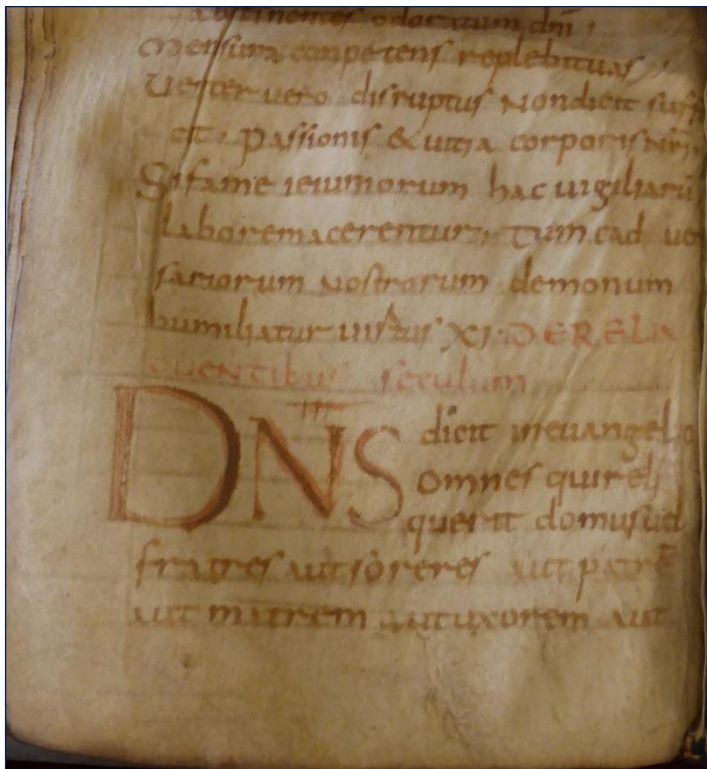 abstinentes odoratum dni ;
Mensura conpetens replebituas ;
Uenter uero disruptus Nondicit suffi
cit. Passionis & uitia corporis Nri.
Sifame ieiuniorum hac uigiliarū
laboremacerentur, Tum ead uer
sariorum Nostrorum demonum
humiliatur uirtus XI. DERELIN
QUENTIbus seculum
DNS dicit ineuangelio
omnes quireli
querit domusuel
fratres autsoreres aut patrē
aut matrem autuxorem aut